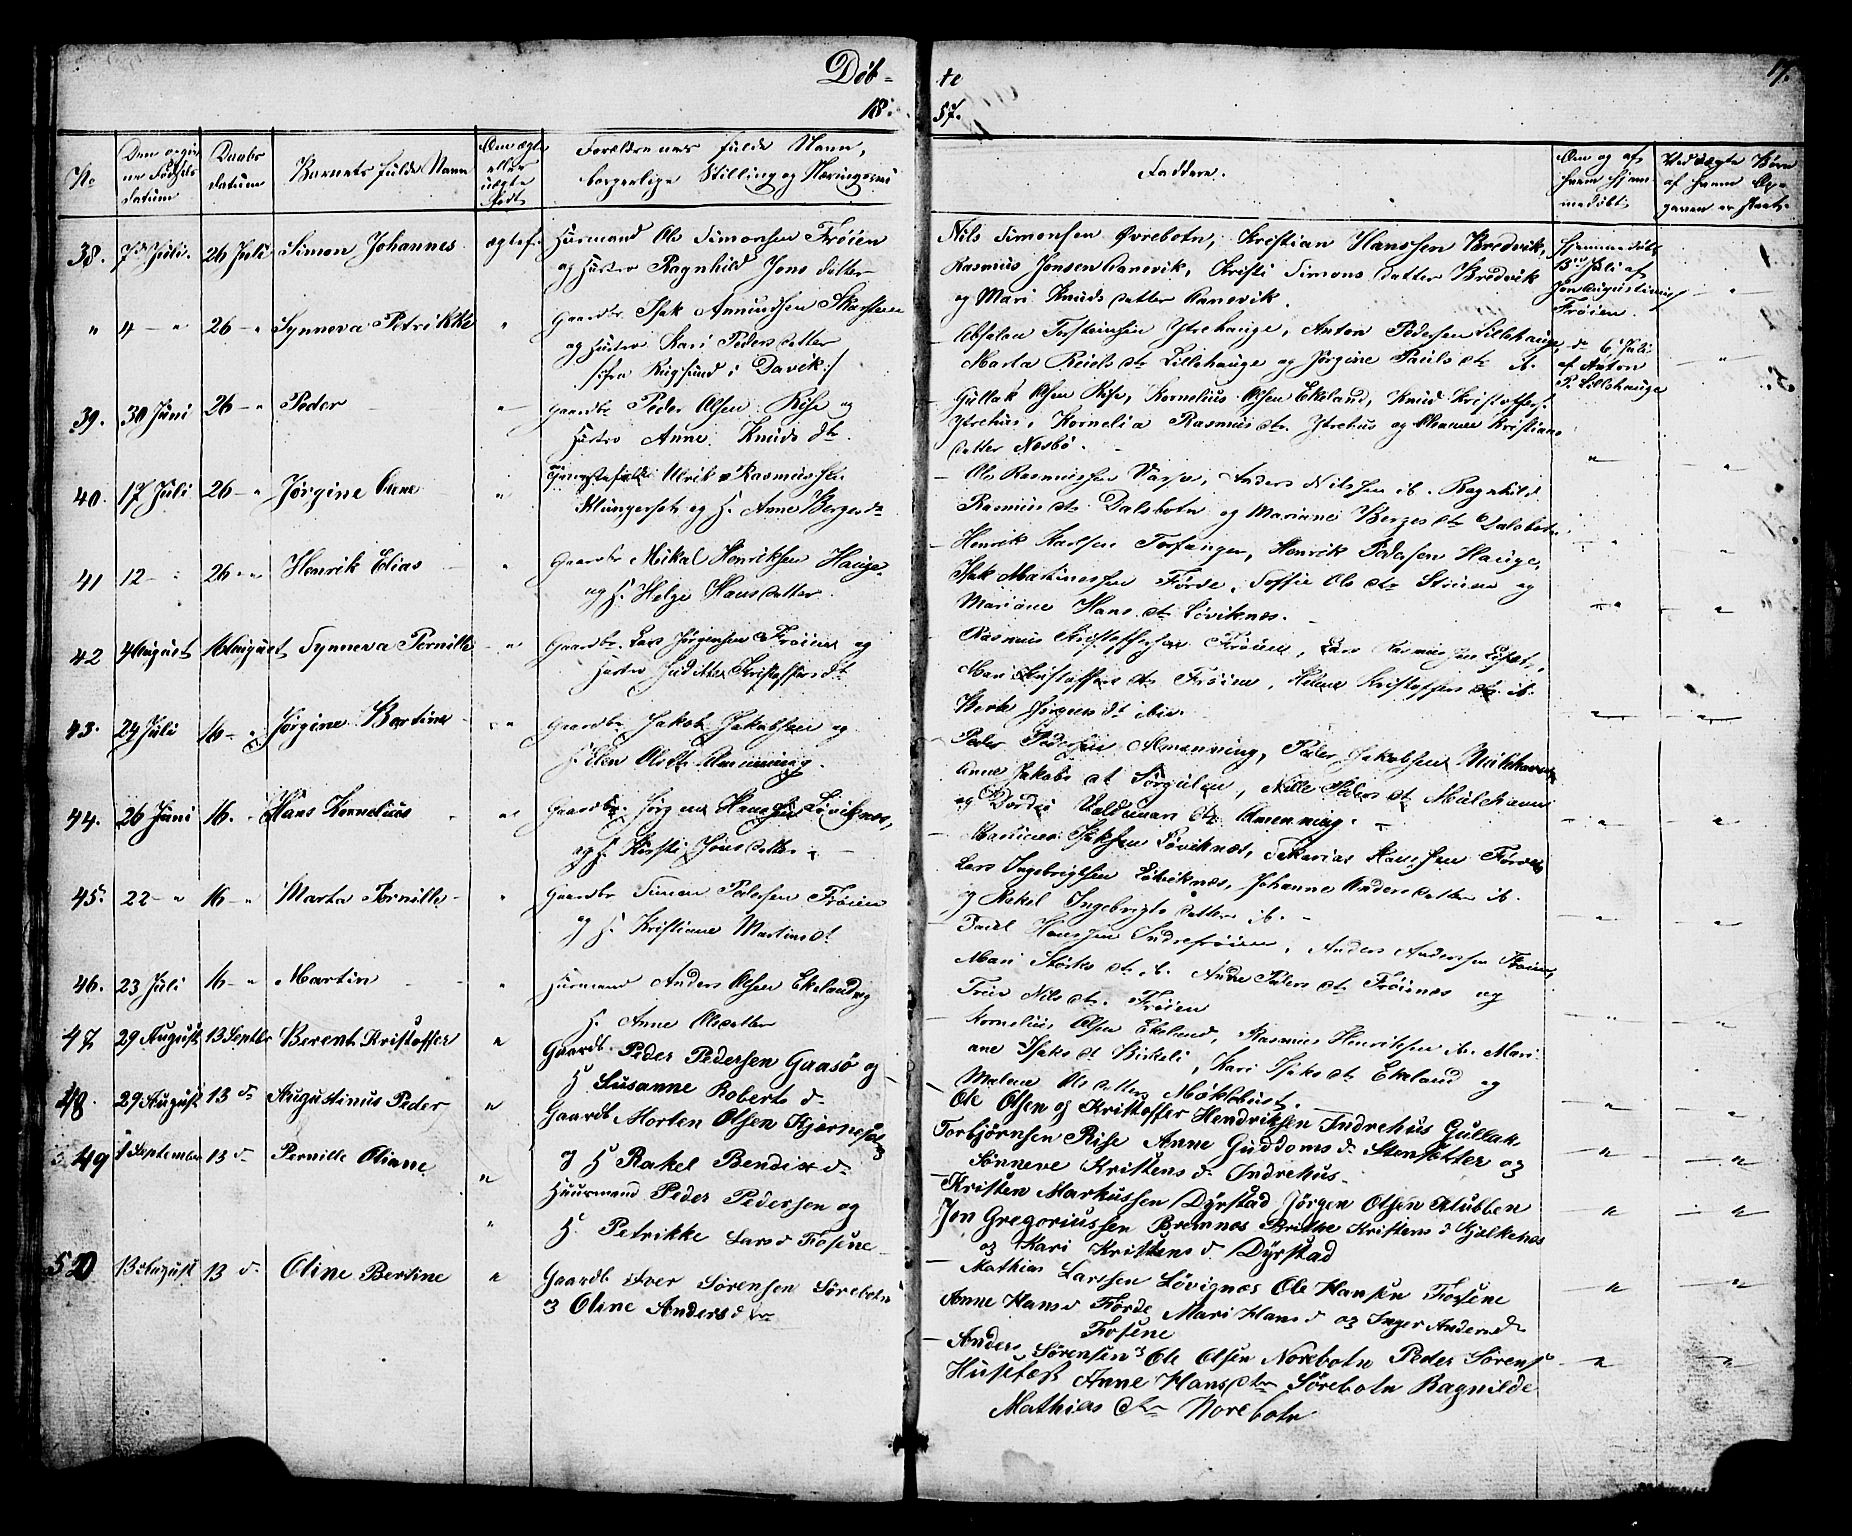 Døb-
te
17.
18.
57.
No
Den opgiv
ne Fødsels
datum
Daabs
datum
Barnets fulde Navn
Om ægte
eller
uægte
født
Forældrenes fulde Navn,
borgerlige Stilling og Næringsvei
Faddere.
Om og af
hvem hjem
medøbt
Ved uægte Børn
af hvem Op-
gaven er skeet.
38. 7de Juli. 26 Juli Simon Johannes ægtef. Huusmand Ole Simonsen Frøien
og Hustro Ragnhild Jons datter
Nils Simonsen Øvrebotn, Kristian Hanssen Bredvik,
Rasmus Jonsen Ranevik, Kristi Simons datter Bredvik
og Mari Knuds datter Ranevik.
Hjemmedøbt
Juli af
Jon Augustinus
Frøien.
" 4 - " 26 - " Synneva Petrikke " Gaardbr Isak Amundsen
og Hustro Kari Peders datter
/:fra Rugsund i Davik:/
Absalon Torsteinsen Ytrehauge, Anton Pedersen Lillehauge,
Marta Reids dtr Lillehauge og Jørgine Pauls dtr ib.
do 6 Juli
af Anton
P. Lillehauge
39. 30 Juni 26 - " Peder " Gaardbr Peder Olsen Rise og
Hustro Anne Knuds dtr.
Gullak Olsen Rise, Kornelius Olsen Ekeland, Knud Kristoffers.
Ytrehus, Kornelia Rasmus dtr. Ytrehus og Kristians
datter Nesbø.
40. 17 Juli 26 - " Jørgine Oline " Ulrik Rasmussen
og H. Anne Berges dtr
Ole Rasmussen, Anders Nilssen ib. Ragnhild
Rasmus dtr Dalsbotn og Mariane Berges dtr Dalsbotn
41 12 - " 26 - " Henrik Elias " Gaardbr Mikal Henriksen Hauge
og H. Helge Hans datter
Henrik Karlsen, Henrik Pedersen Hauge,
Isak Martinessen Førde, Soffie Ols dtr og
Mariane Hans dtr Løviknes.
42 4 August 16 August Synneva Pernille " Gaardbr. Lars Jørgensen Frøien og
Hustro Judithe Kristoffers dtr
Rasmus Kristoffersen Frøien, Lars Rasmussen
Mari Kristoffers dtr Frøien, Helene Kristoffers dtr ib.
Berte Jørgens dtr ibid.
43. 24 Juli 16 - " Jørgine Bertine " Gaardbr Jakob Jakobsen og
H. Elen Ols dtr Almenning.
Peder Pedersen Almenning, Peder Jakobsen
Anne Jakobs dtr Sørgulen, Nille Peders dtr
og Valdemar dtr Almenning.
44. 26 Juni 16. " Hans Kornelius " Gaardbr. Jørgen Hanssen Løviknes,
og H. Kirsti Jons datter
Isaksen Løviknes, Sakarias Hanssen Førde
Lars Ingebrigtsen Løviknes, Johanne Anders datter ib.
og Rakel Ingebrigts datter ib.
45. 22 - " 16 - " Marta Pernille " Gaardbr Simon Pedersen Frøien
og H. Kristiane Martins dtr
Paul Hanssen Indrefrøien, Anders Andersen Frøien,
Mari dtr ib. Anne Peders dtr Frøienes og
Nils dtr. Frøien
46. 23 Juli 16 - " Martin " Huusmand Anders Olsen Ekeland og
H. Anne Olsdatter
Kornelius Olsen Ekeland, Rasmus Henriksen ib. Mari
ane Isaks dtr Birkeli, Kari Isaks dtr Ekeland og
Malene Ols datter Møklebust.
47 29 August 13 Septbr Berent Kristoffer " Gaardb. Peder Pedersen Gaasø og
H Susanne Roberts d
Ole Olsen og Kristoffer Hendriksen Indrehus Gullak
Torbjørnsen Rise Anne Guddoms d. Stensætter og
Sønneve Kristens d. Indrehus.
48. 29 August 13 d. Augustinus Peder " Gaardb Morten Olsen
og H Rakel Bendix d
Kristen Markussen Dyrstad Jørgen Olsen Klubben
Jon Gregoriussen Bremnes Kristens d Hjelkenes
og Kari Kristens d. Dyrstad
49 1 September 13 d Pernille Oliane " Huusmand Peder Pedersen og
H. Petrikke Lars d Fosene
Mathias Larssen Løvignæs Ole Hansen Fosene
Anne Hans d Førde Mari Hans d og Inger Anders d
Fosene
50 13 August 13 d. Oline Bertine " Gaardb Iver Sørensen Sørebotn
og Oline Anders dtr
Anders Sørensen og Ole Olsen Norebotn Peder Sørens
Husefest Anne Hans dtr Sørebotn Ragnilde
Mathias dtr Norebotn